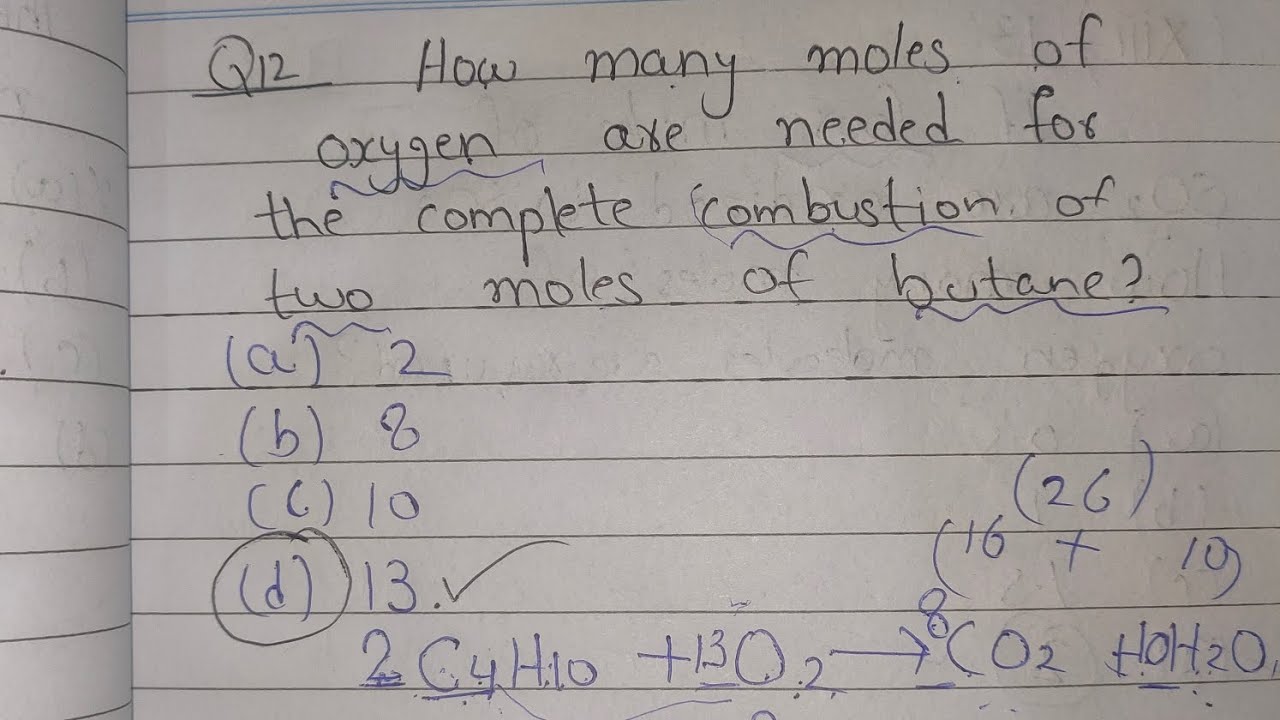 Q12 How many moles of
oxygen are needed for
the complete combustion of
two moles of butane?
(a) 2
(b) 8
(c) 10
(26)
(16 + 10)
(d) 13. ✓
2C4H10 + 13O2 → 8CO2 + 10H2O